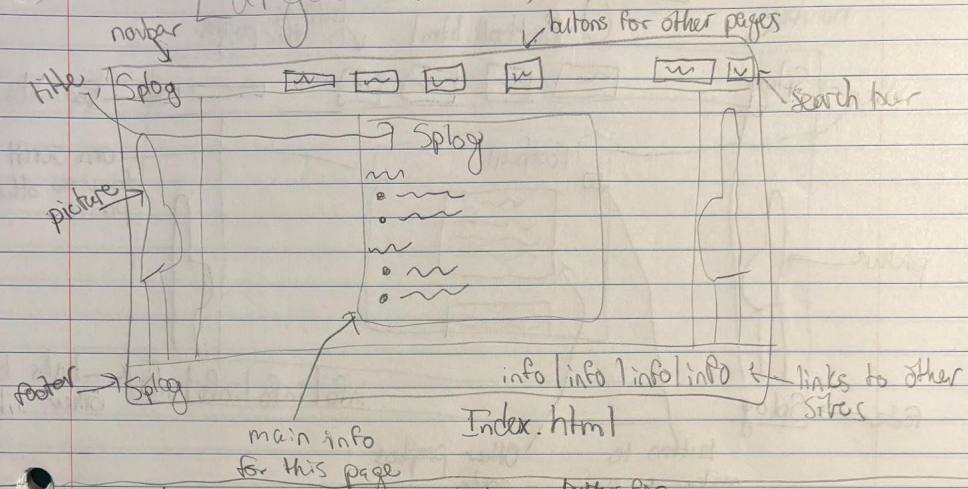 navbar
buttons for other pages
tittle
Splog
search bar
Splog
picture
footer
Splog
info | info | info | info
links to other
sites
main info
for this page
Index.html